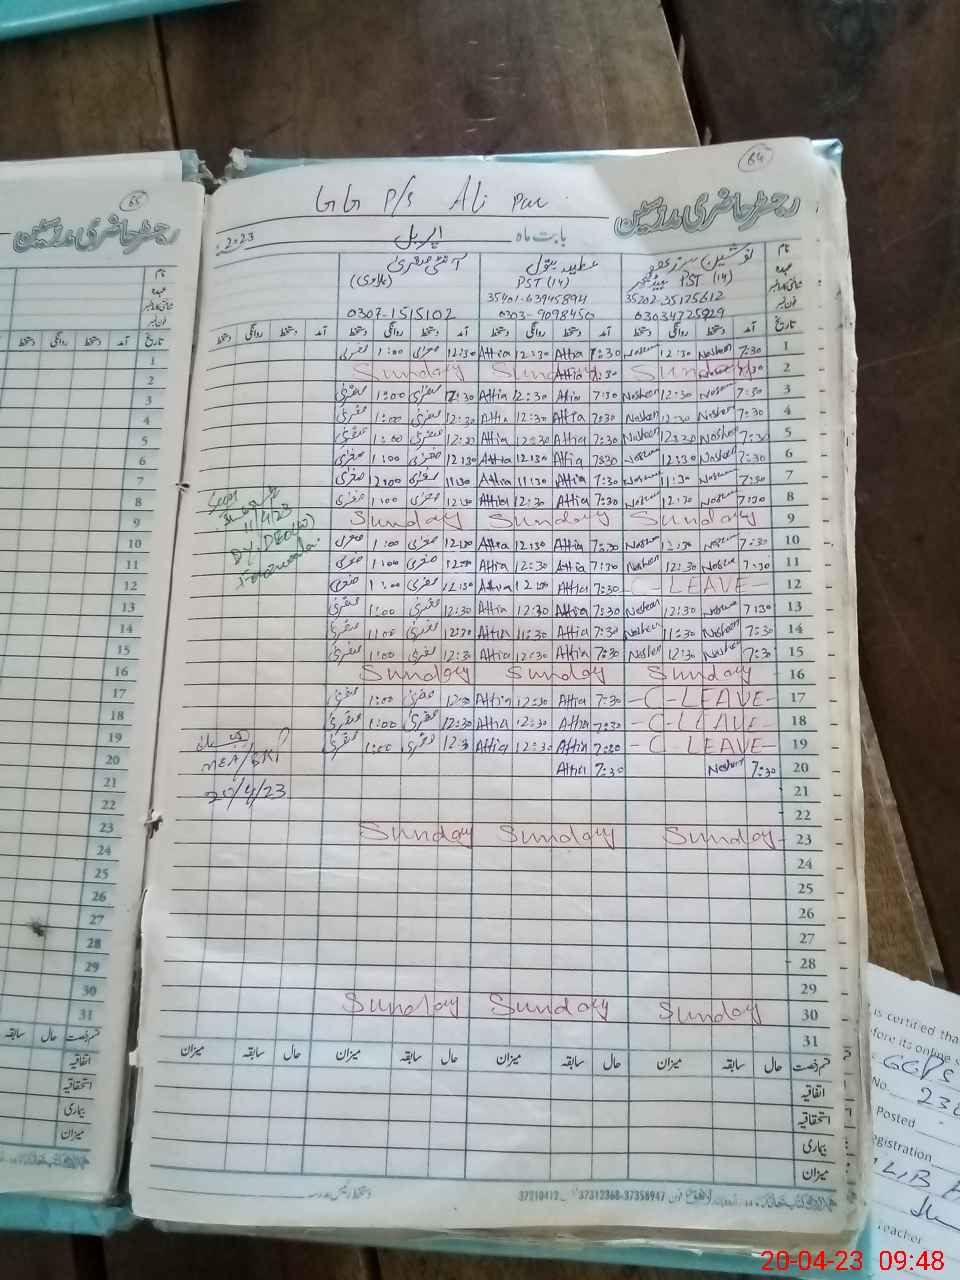 64
GG P/S Ali Pur
رجسٹر حاضری مدرسین
بابت ماہ اپریل 2023
نام
عہدہ
شناختی کارڈ نمبر
فون نمبر
PST (14) PST (14)
35202-35175612 35401-63945894
03034725929 0303-9098450 0307-1515102
تاریخ آمد دستخط روانگی دستخط آمد دستخط روانگی دستخط آمد دستخط روانگی دستخط آمد دستخط روانگی دستخط
1 7:30 Nosheen 12:30 Nosheen 7:30 Attia 12:30 Attia 12:30 صغریٰ 1:00 صغریٰ
2 Sunday Sunday Sunday
3 7:30 Nosheen 12:30 Nosheen 7:30 Attia 12:30 Attia 12:30 صغریٰ 1:00 صغریٰ
4 7:30 Nosheen 12:30 Nosheen 7:30 Attia 12:30 Attia 12:30 صغریٰ 1:00 صغریٰ
5 7:30 Nosheen 12:30 Nosheen 7:30 Attia 12:30 Attia 12:30 صغریٰ 1:00 صغریٰ
6 7:30 Nosheen 12:30 Nosheen 7:30 Attia 12:30 Attia 12:30 صغریٰ 1:00 صغریٰ
7 7:30 Nosheen 11:30 Nosheen 7:30 Attia 11:30 Attia 11:30 صغریٰ 12:00 صغریٰ
8 7:30 Nosheen 12:30 Nosheen 7:30 Attia 12:30 Attia 12:30 صغریٰ 1:00 صغریٰ
9 Sunday Sunday Sunday
10 7:30 Nosheen 12:30 Nosheen 7:30 Attia 12:30 Attia 12:30 صغریٰ 1:00 صغریٰ
11 7:30 Nosheen 12:30 Nosheen 7:30 Attia 12:30 Attia 12:30 صغریٰ 1:00 صغریٰ
12 C-LEAVE- 7:30 Attia 12:30 Attia 12:30 صغریٰ 1:00 صغریٰ
13 7:30 Nosheen 12:30 Nosheen 7:30 Attia 12:30 Attia 12:30 صغریٰ 1:00 صغریٰ
14 7:30 Nosheen 11:30 Nosheen 7:30 Attia 11:30 Attia صغریٰ 11:00 صغریٰ
15 7:30 Nosheen 12:30 Nosheen 7:30 Attia 12:30 Attia 12:30 صغریٰ 1:00 صغریٰ
16 Sunday Sunday Sunday
17 -C-LEAVE- 7:30 Attia 12:30 Attia 12:30 صغریٰ 1:00 صغریٰ
18 -C-LEAVE- 7:30 Attia 12:30 Attia 12:30 صغریٰ 1:00 صغریٰ
19 -C-LEAVE- 7:30 Attia 12:30 Attia 12:3 صغریٰ 1:00 صغریٰ
20 7:30 Nosheen 7:30 Attia
21
22
23 Sunday Sunday Sunday
24
25
26
27
28
29
30 Sunday Sunday Sunday
31
11/4/23
DY.DEO
MEA/
20/4/23
قسم رخصت حال سابقہ میزان حال سابقہ میزان حال سابقہ میزان
اتفاقیہ
استحقاقیہ
بیماری
میزان
37210412 37312368-37358947
65
رجسٹر حاضری مدرسین
نام
عہدہ
شناختی کارڈ نمبر
فون نمبر
تاریخ آمد دستخط روانگی دستخط
1
2
3
4
5
6
7
8
9
10
11
12
13
14
15
16
17
18
19
20
21
22
23
24
25
26
27
28
29
30
31
قسم رخصت حال سابقہ
اتفاقیہ
استحقاقیہ
بیماری
میزان
is certified tha
fore its online s
GGPS
No. 23
Posted
egistration
Teacher
20-04-23 09:48